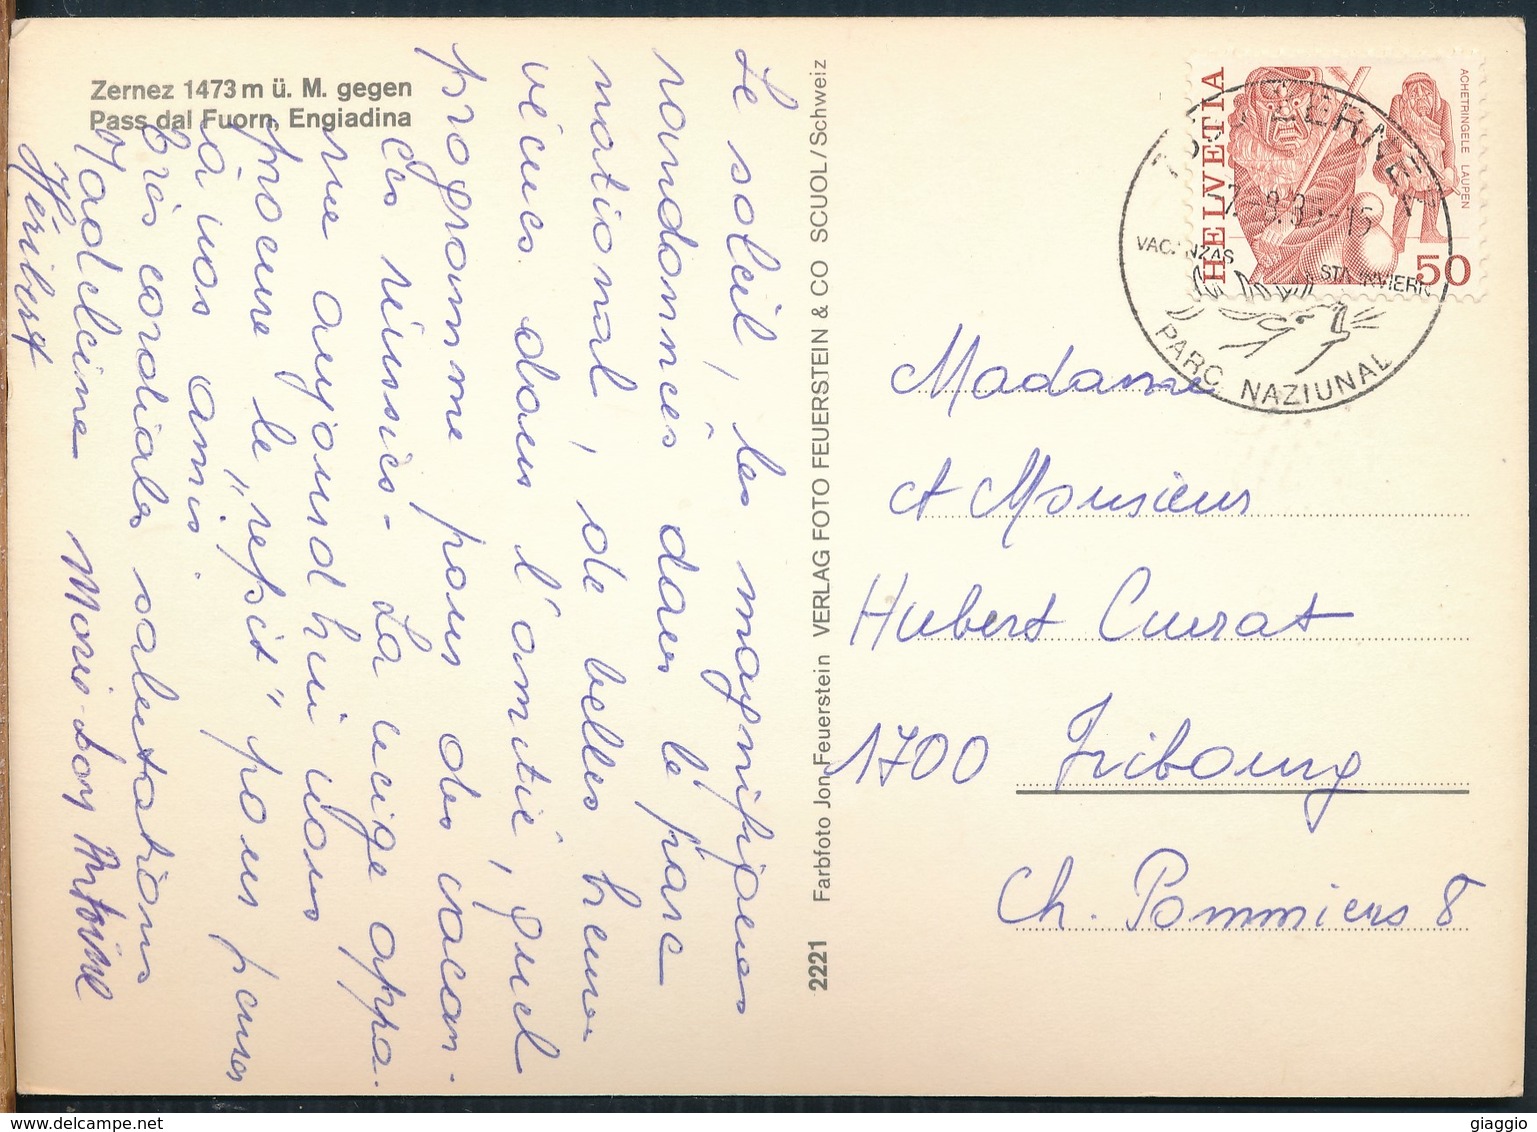 Zernez 1473 m ü. M. gegen
Pass dal Fuorn, Engiadina
Le soleil, les magnifiques
randonnées dans le parc
national, de belles heures
vécues dans l'amitié, quel
programme pour des vacan-
ces réussies - La neige appa-
rue aujourd'hui nous
procure le "répit" pour penser
à nos amis.
Très cordiales salutations
Madeleine Marie-Lou Antoine
Héribert
2221 Farbfoto Jon Feuerstein VERLAG FOTO FEUERSTEIN & CO SCUOL/Schweiz
HELVETIA
ACHETRINGELE LAUPEN
50
ZERNEZ
PARC NAZIUNAL
Madame
et Monsieur
Hubert Currat
1700 Fribourg
Ch. Pommiers 8
delcampe.net
giaggio